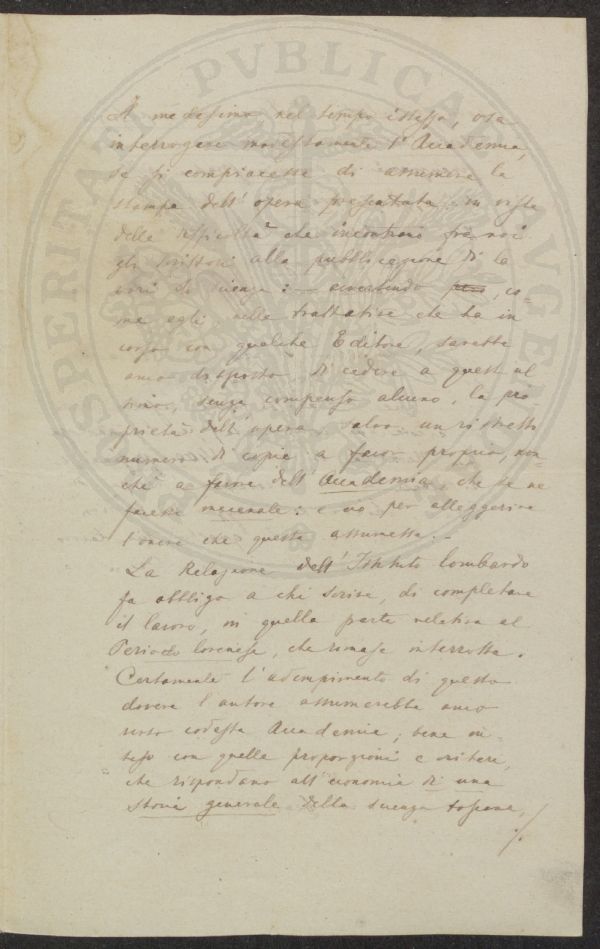 PROSPERITATI PVBLICAE AVGENDAE
Il medesimo, nel tempo istesso, osa
interrogare modestamente l'Accademia,
se si compiacesse di assumere la
stampa dell'opera presentata in vista
delle difficoltà che incontrasi fra noi
gli scrittori alla pubblicazione di la
vori di scienza: — avvertendo, co-
me egli, nelle trattative che ha in
corso con qualche Editore, sarebbe
anco disposto di cedere a quest'ul
timo, senza compenso alcuno, la pro-
prietà dell'opera salvo un ristretto
numero di copie a favor proprio, non-
chè a favore dell'Accademia, che se ne
facesse mecenate: e ciò per alleggerire
l'onere che questa assumesse. —
La Relazione dell'Istituto lombardo
fa obbligo a chi scrive, di completare
il lavoro, in quella parte relativa al
Periodo lorenese, che rimase interrotta.
Certamente l'adempimento di questo
dovere l'autore assumerebbe anco
verso codesta Accademia; bene in-
teso con quelle proporzioni e criteri,
che rispondano all'economia di una
storia generale della scienza toscana,
./.